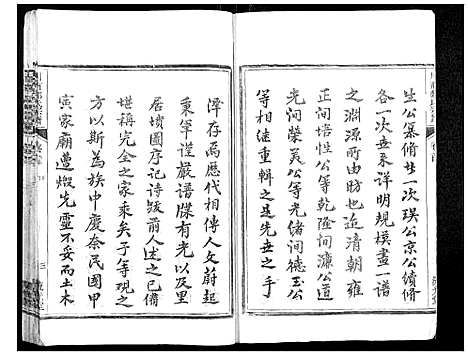 生公纂修廿一次瑛公京公續修
各一次無釆詳明規模盡一譜
之淵源所由昉也迨清朝雍
正間培性公等乾隆間濂公道
光間榮夷公等光緒間德玉公
等相繼重輯之是先世之手
澤存焉應代相傳人文蔚起
秉筆謹嚴譜牒有光以及里
居墳圖序記詩跋前人已備
堪稱完全之家乘矣子等覩之
方以斯為族中慶奈民國甲
寅家廟遭燬先靈不妥而土木
三